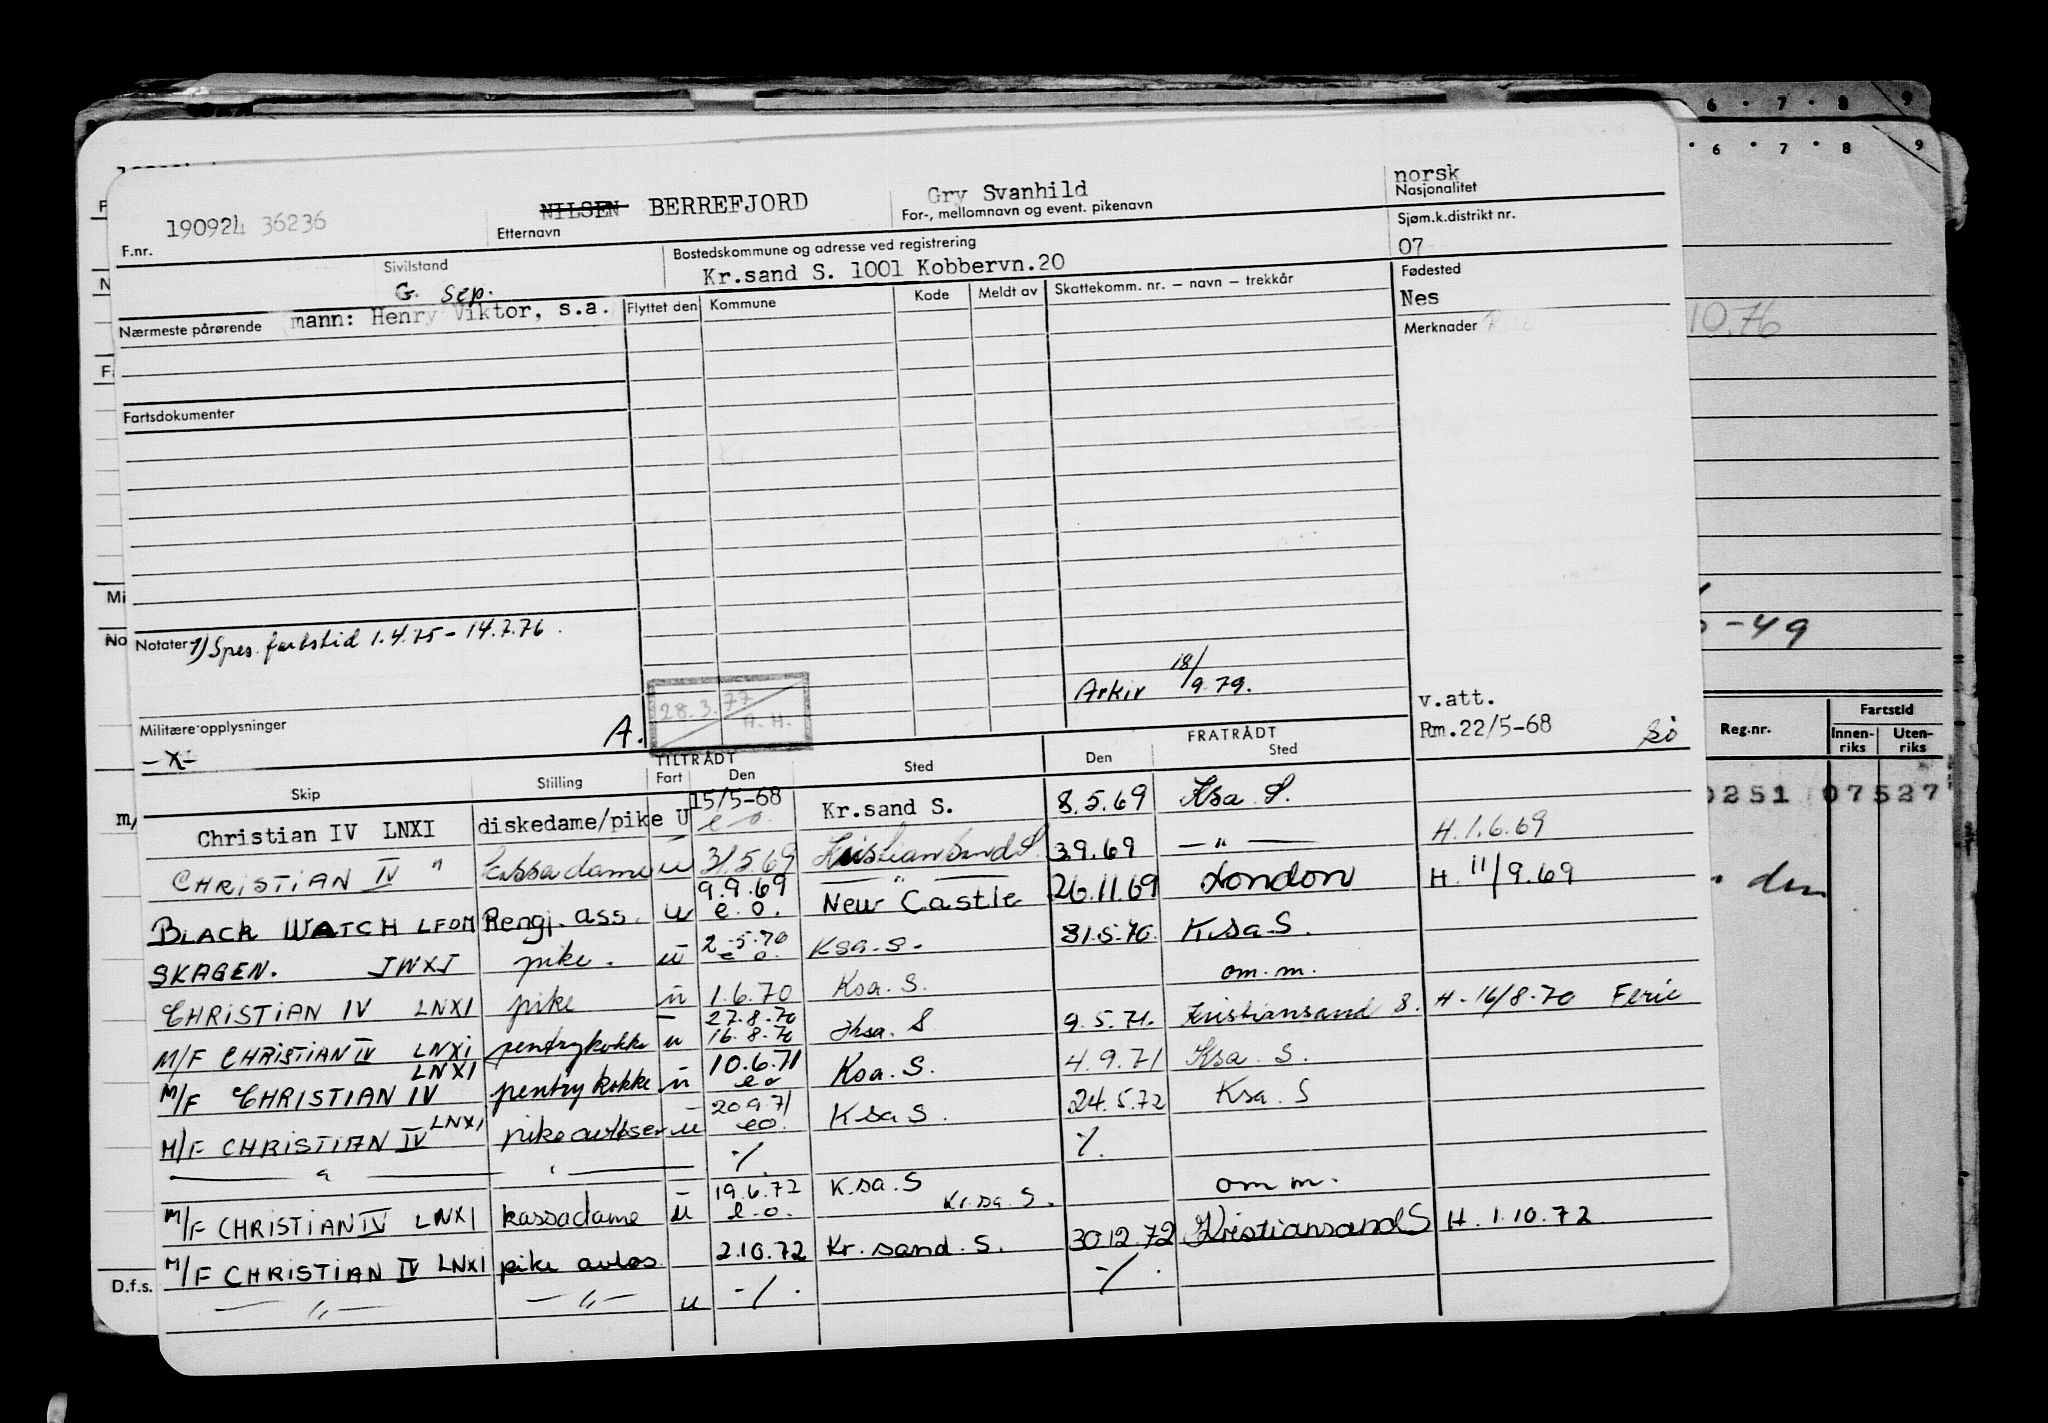 190924 36236
F.nr.
NILSEN BERREFJORD
Etternavn
Gry Svanhild
For-, mellomnavn og event. pikenavn
norsk
Nasjonalitet
Sivilstand
G. sep.
Bostedskommune og adresse ved registrering
Kr.sand S. 1001 Kobbervn.20
Sjøm.k.distrikt nr.
07
Nærmeste pårørende (mann: Henry Viktor, s.a.
Flyttet den Kommune Kode Meldt av Skattekomm. nr. – navn – trekkår
Fødested
Nes
Merknader
Fartsdokumenter
Notater 1) Spes. fartstid 1.4.75 - 14.7.76.
Arkiv 18/9.79.
Militære opplysninger
-x-
A.
28.3.77
A.H.
v.att.
Rm.22/5-68
TILTRÅDT FRATRÅDT
Skip Stilling Fart Den Sted Den Sted
Christian IV LNXI diskedame/pike U 15/5-68 e o. Kr.sand S. 8.5.69 Ksa S.
CHRISTIAN IV " kassadame u 31.5.69 Kristiansand S. 3.9.69 — " — H. 1.6.69
BLACK WATCH LFOM Rengj. ass. u 9.9.69 e.o. New Castle 26.11.69 London H. 11/9.69
SKAGEN. JWXJ pike. u 2-5.70 e o. Ksa.S. 31.5.70. Ksa S.
CHRISTIAN IV LNXI pike u 1.6.70 Ksa. S. om. m.
M/F CHRISTIAN IV LNXI pentrykokke u 27.8.70 16.8.70 Ksa. S 9.5.71. Kristiansand S. H. 16/8.70 Ferie
M/F CHRISTIAN IV LNXI pentrykokke u 10.6.71 eo Ksa. S. 4.9.71 Ksa. S.
M/F CHRISTIAN IV LNXI pike avløser u 20971 eo. Ksa S. 24.5.72 Ksa. S
— " — ./. ./.
M/F CHRISTIAN IV LNXI kassadame u 19.6.72 e.o. K.sa.S Kr.sa.S. om m.
M/F CHRISTIAN IV LNXI pike avløs. 2.10.72 Kr. sand. S. 30.12.72 Kristiansand S H. 1.10.72
— " — — " — u ./. ./.
6 7 8 9
6 7 8 9
10.76
-49
Reg.nr.
Fartstid
Innen-riks Uten-riks
0251 07527
den
F
N
Mi
No
m/
D.f.s.